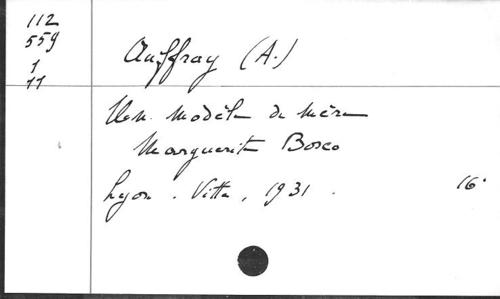 112
559
1
11
Auffray (A.)
Un modèle de mère
Marguerite Bosco
Lyon. Vitte, 1931. 16°